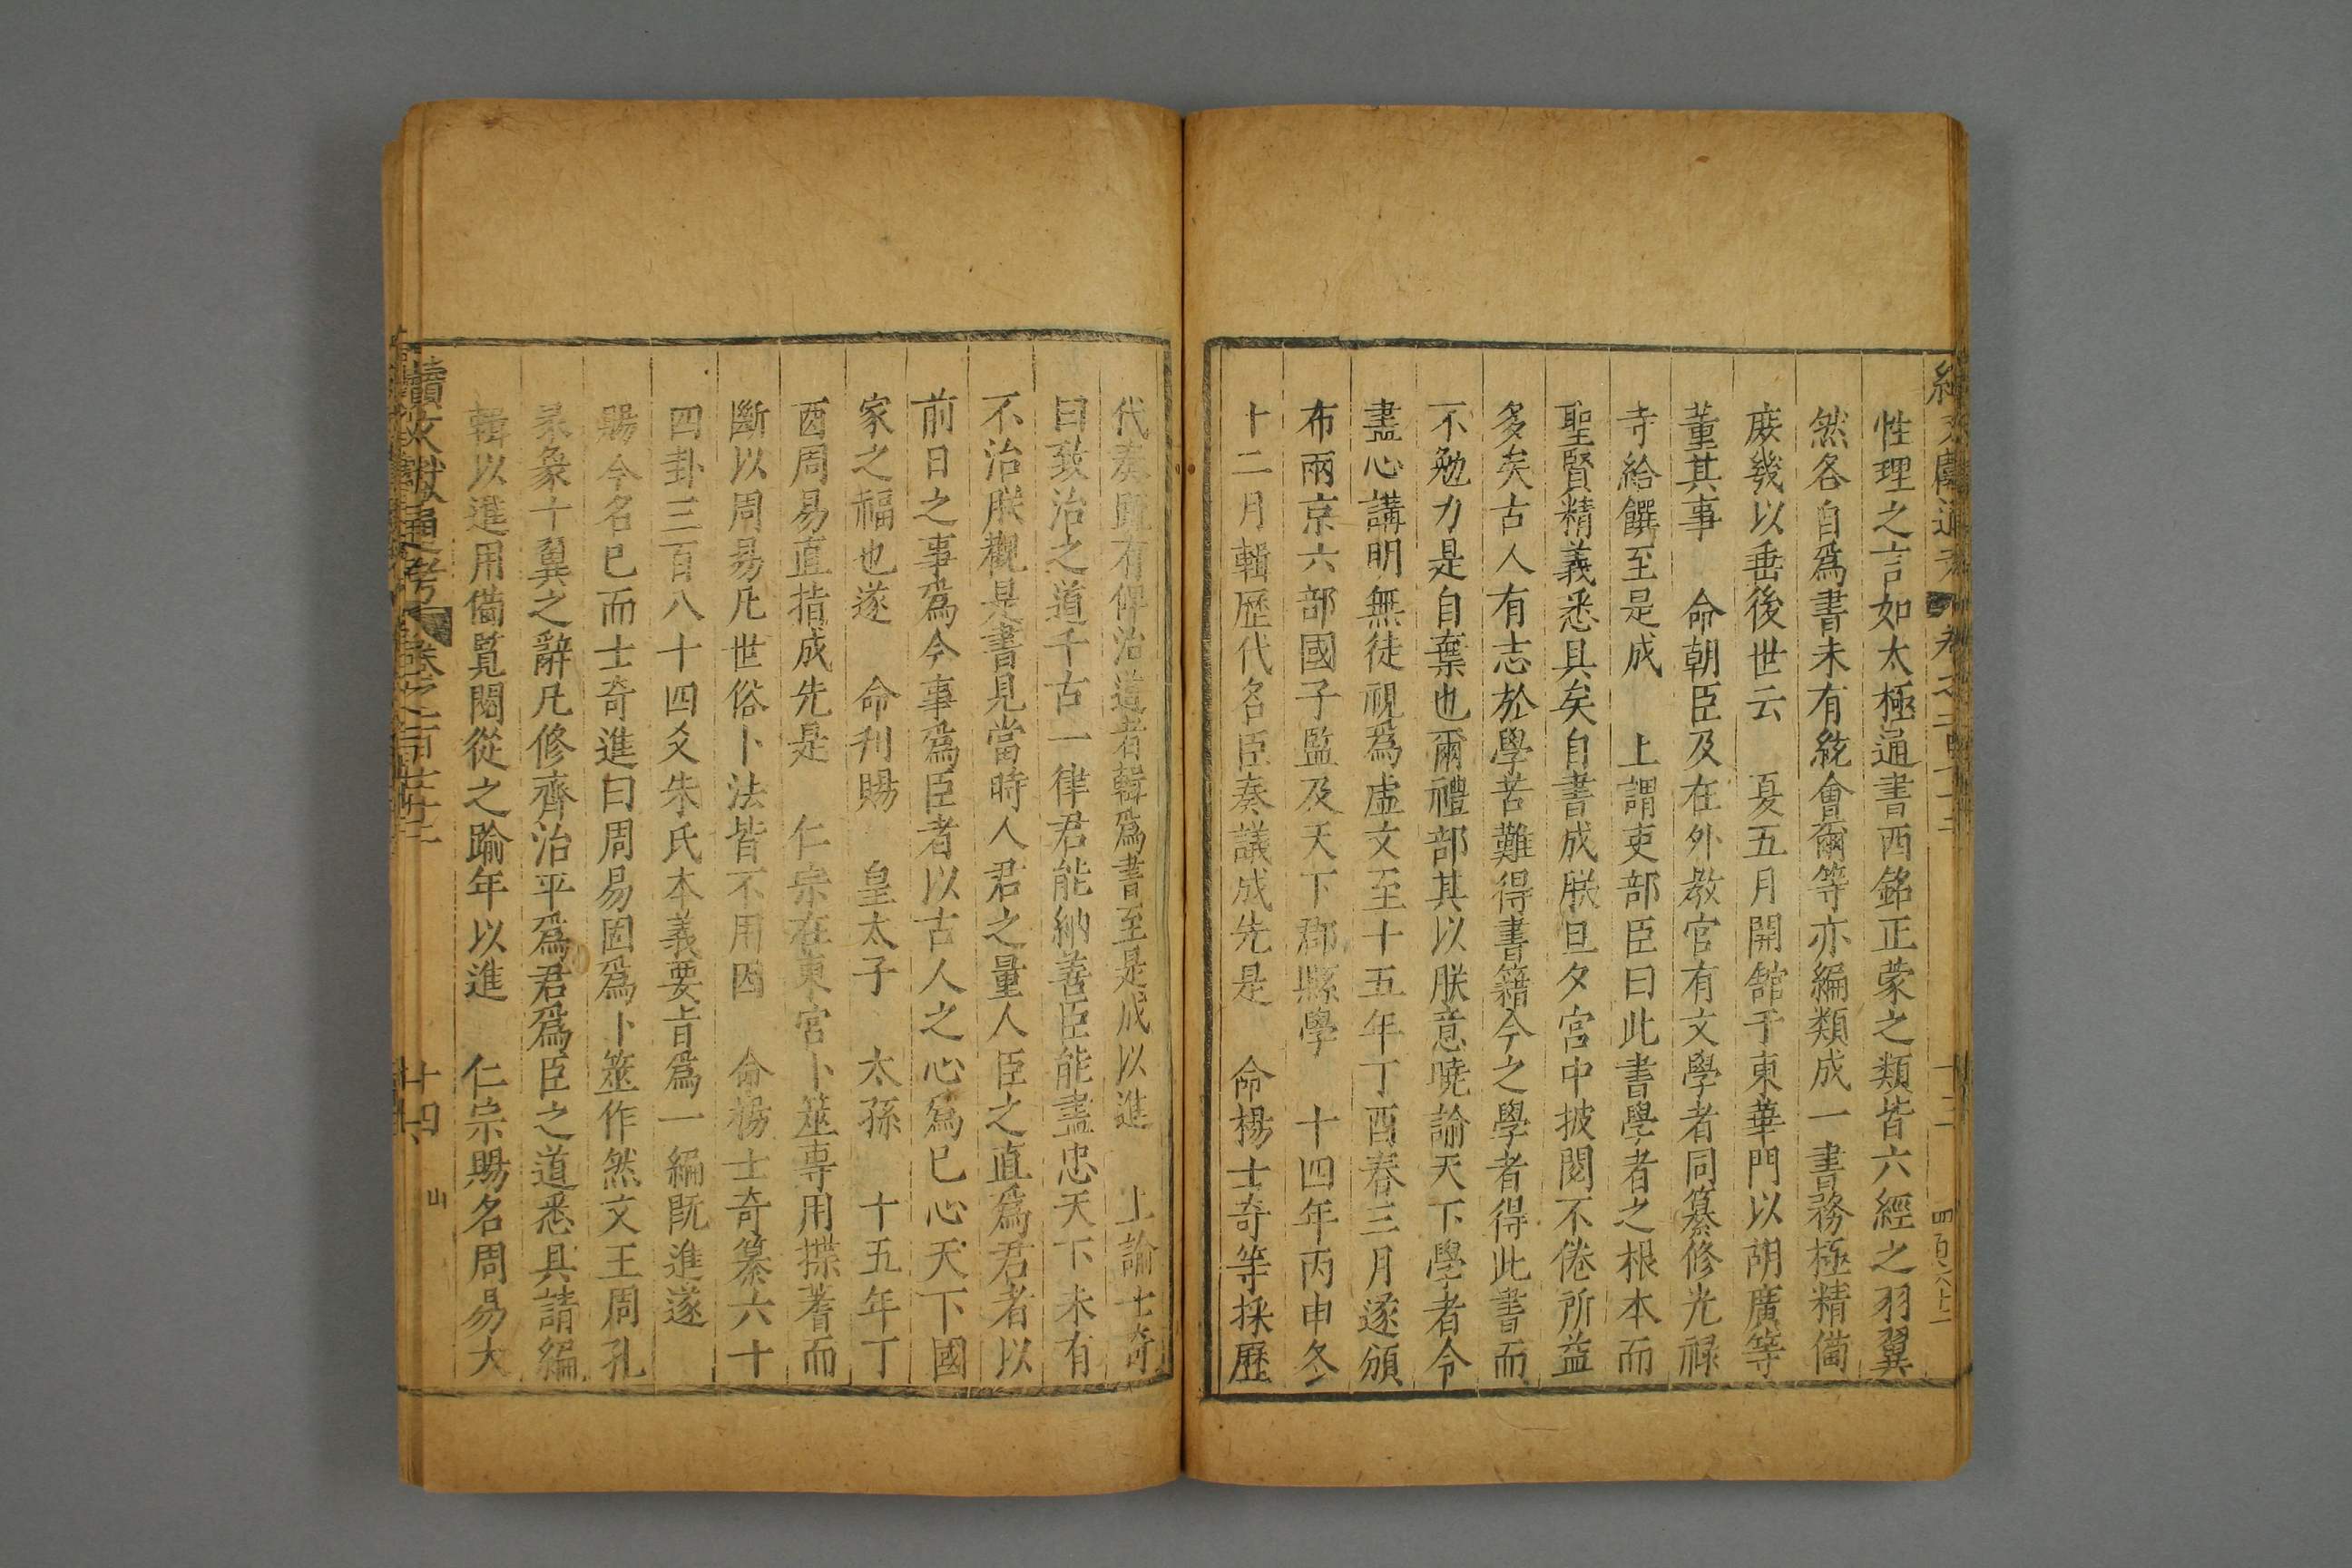 性理之言如太極通書西銘正蒙之類皆六經之羽翼
然各自爲書未有統會爾等亦編類成一書務極精備
庶幾以垂後世云 夏五月開舘于東華門以胡廣等
董其事 命朝臣及在外教官有文學者同纂修光禄
寺給饌至是成 上謂吏部臣曰此書學者之根本而
聖賢精義悉具矣自書成朕旦夕宮中披閱不倦所益
多矣古人有志於學苦難得書籍今之學者得此書而
不勉力是自棄也爾禮部其以朕意曉諭天下學者令
盡心講明無徒視爲虛文至十五年丁酉春三月遂頒
布兩京六部國子監及天下郡縣學 十四年丙申冬
十二月輯歷代名臣奏議成先是 命楊士奇等採歷
代奏疏有俾治道者輯爲書至是成以進 上諭士奇
曰致治之道千古一律君能納善臣能盡忠天下未有
不治朕觀是書見當時人君之量人臣之直爲君者以
前日之事爲今事爲臣者以古人之心爲已心天下國
家之福也遂 命刋賜 皇太子 太孫 十五年丁
酉周易直指成先是 仁宗在東宮卜筮專用揲蓍而
斷以周易凡世俗卜法皆不用因 命楊士奇纂六十
四卦三百八十四爻朱氏本義要旨爲一編旣進遂
賜今名已而士奇進曰周易固爲卜筮作然文王周孔
彖象十翼之辭凡修齊治平爲君爲臣之道悉具請編
輯以進用備覧閱從之踰年以進 仁宗賜名周易大
續文獻通考 卷之一百 十四 山